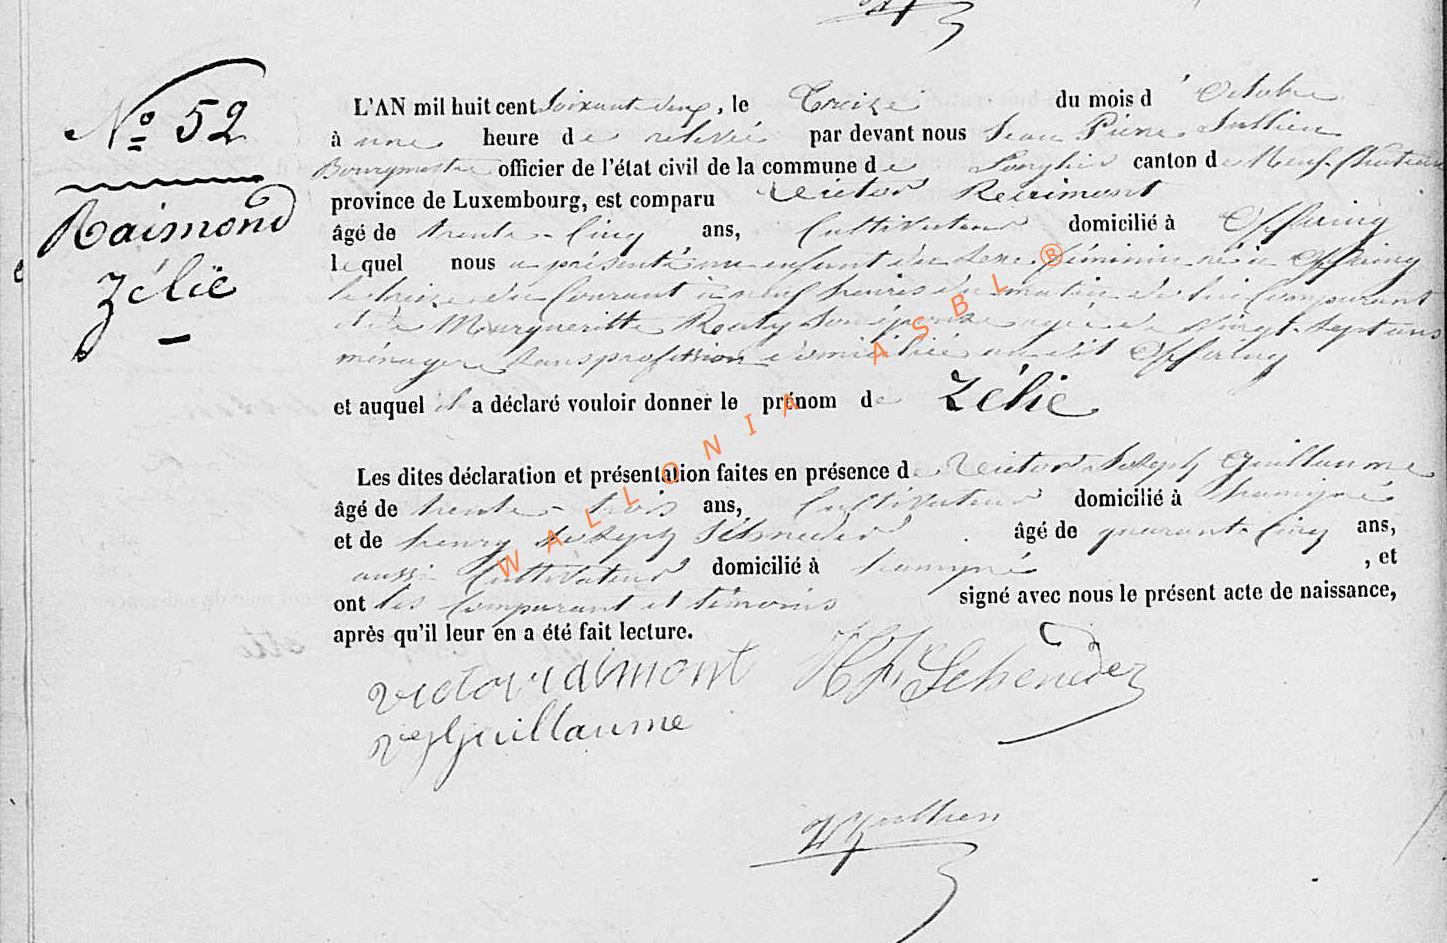 N° 52
Raimond
Zélie
L'AN mil huit cent soixante deux, le Treize du mois d'Octobre
à une heure de relevée par devant nous Jean Pierre Jullien
Bourgmestre officier de l'état civil de la commune de Longlier canton de Neufchateau
province de Luxembourg, est comparu Victor Reaimont
âgé de trente-cinq ans, Cultivateur domicilié à Offaing
lequel nous a présenté une enfant du sexe féminin né à Offaing
le treize du Courant à neuf heures du matin de lui Comparant
et de Margueritte Rosty son épouse agée de vingt-sept ans
ménagere sans profession domiciliée au dit Offaing
et auquel il a déclaré vouloir donner le prénom de Zélie
Les dites déclaration et présentation faites en présence de Victor Joseph Guillaume
âgé de trente-trois ans, Cultivateur domicilié à hamipré
et de henry Joseph Schneder âgé de quarante-Cinq ans,
aussi Cultivateur domicilié à hamipré , et
ont les Comparant et témoins signé avec nous le présent acte de naissance,
après qu'il leur en a été fait lecture.
victor raimont HJ Scheneder
V J Guillaume
Jullien
WALLONIA ASBL ®